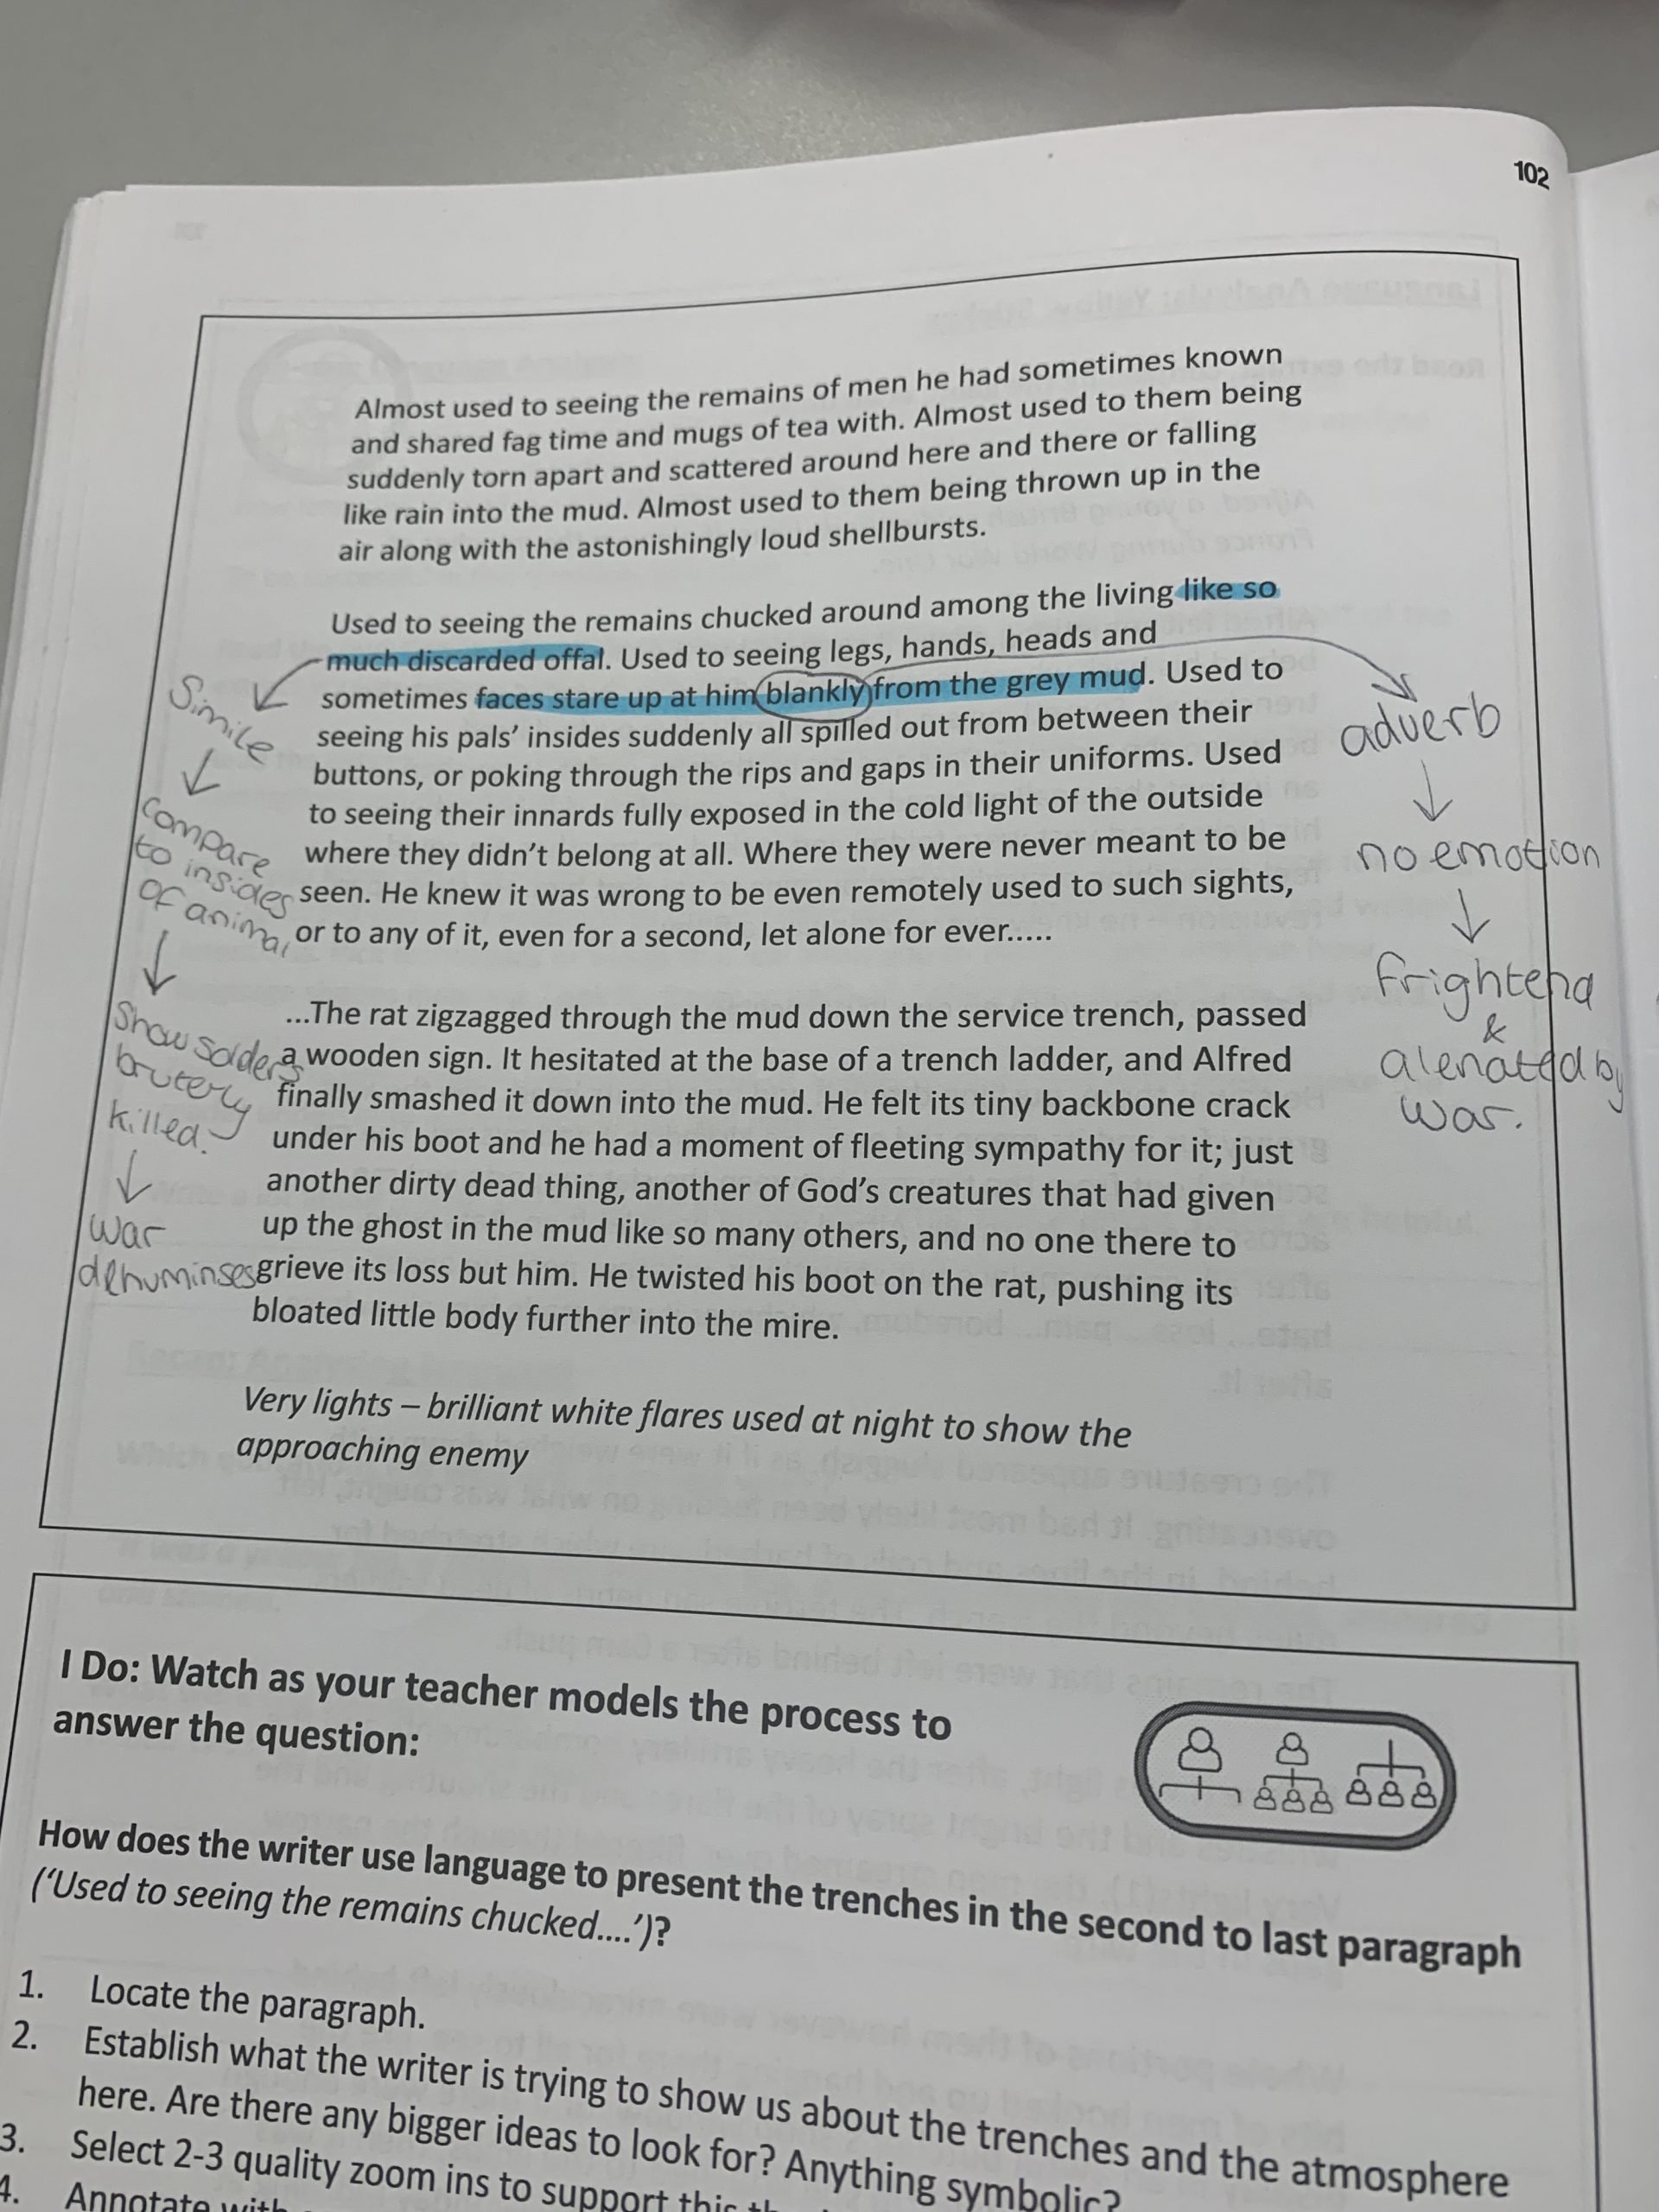 102
Almost used to seeing the remains of men he had sometimes known
and shared fag time and mugs of tea with. Almost used to them being
suddenly torn apart and scattered around here and there or falling
like rain into the mud. Almost used to them being thrown up in the
air along with the astonishingly loud shellbursts.
Used to seeing the remains chucked around among the living like so
much discarded offal. Used to seeing legs, hands, heads and
sometimes faces stare up at him blankly from the grey mud. Used to
seeing his pals' insides suddenly all spilled out from between their
buttons, or poking through the rips and gaps in their uniforms. Used
to seeing their innards fully exposed in the cold light of the outside
where they didn't belong at all. Where they were never meant to be
seen. He knew it was wrong to be even remotely used to such sights,
or to any of it, even for a second, let alone for ever.....
...The rat zigzagged through the mud down the service trench, passed
a wooden sign. It hesitated at the base of a trench ladder, and Alfred
finally smashed it down into the mud. He felt its tiny backbone crack
under his boot and he had a moment of fleeting sympathy for it; just
another dirty dead thing, another of God's creatures that had given
up the ghost in the mud like so many others, and no one there to
grieve its loss but him. He twisted his boot on the rat, pushing its
bloated little body further into the mire.
Very lights – brilliant white flares used at night to show the
approaching enemy
Simile
compare
to insides
of animal
Show solders
brutery
killed.
war
dehuminses
adverb
no emotion
frightend
&
alenated by
war.
I Do: Watch as your teacher models the process to
answer the question:
How does the writer use language to present the trenches in the second to last paragraph
('Used to seeing the remains chucked....')?
1. Locate the paragraph.
2. Establish what the writer is trying to show us about the trenches and the atmosphere
here. Are there any bigger ideas to look for? Anything symbolic?
3. Select 2-3 quality zoom ins to support this
4. Annotate with